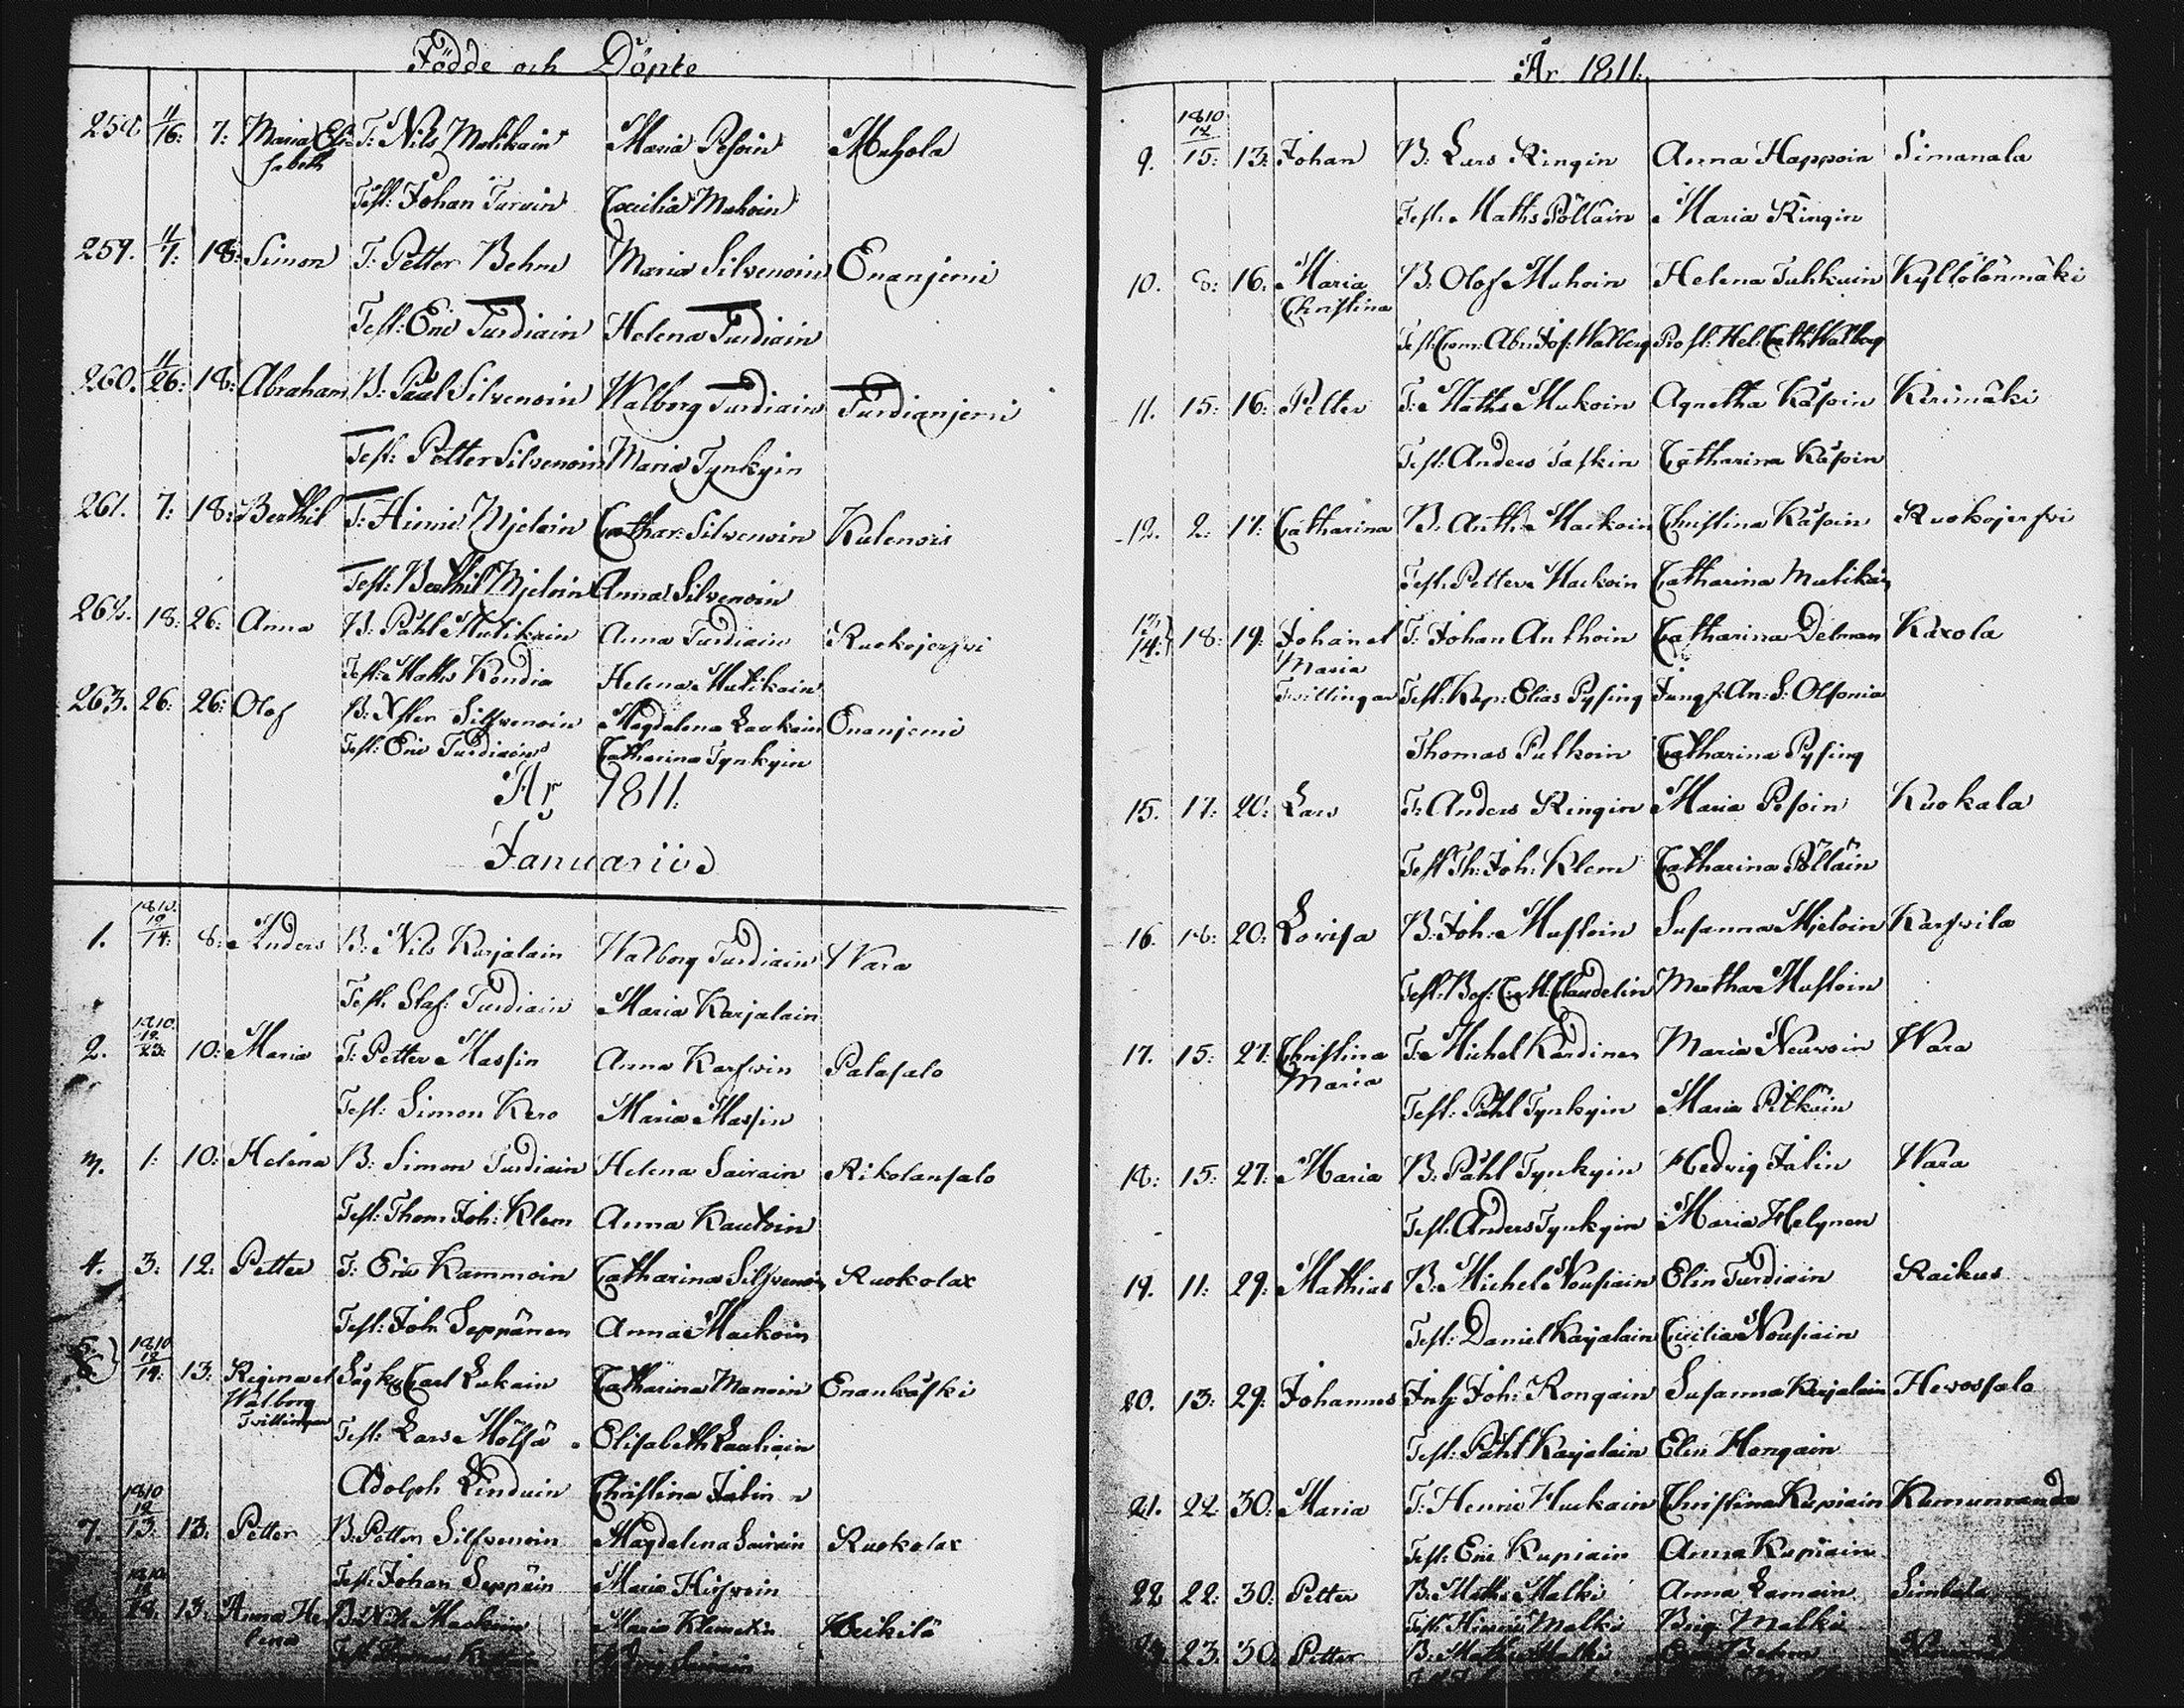 Födde och Döpte
258 11/16: 7: Maria Eli= T: Nils Matikain Maria Pesoin Muhola
sabeth
Test: Johan Turuin Cecilia Muhoin
259. 11/7: 18: Simon T: Petter Behm Maria Silvenoin Enanjemi
Test: Eric Turdiain Helena Turdiain
260. 11/26: 18: Abraham B: Paul Silvenoin Walborg Turdiain Turdianjemi
Test: Petter Silvenoin Maria Tynkyin
261. 7: 18: Berthil T: Hinric Mjeloin Cathar: Silvenoin Kulenois
Test: Berthil Mjeloin Anna Silvenoin
262. 18: 26: Anna B: Påhl Mutikain Anna Turdiain Ruokojerfvi
Test: Maths Kondia Helena Mutikain
263. 26: 26: Olof B: Silfvenoin Magdalena Laukain Enanjemi
Test: Eric Turdiain Catharina Tynkyin
År 1811.
Januarius
1. 1810. 12/14: 8: Anders B: Nils Karjalain Walborg Turdiain Wara
Test: Staf: Turdiain Maria Karjalain
2. 1810. 12/23: 10: Maria T: Petter Massin Anna Karfvin Palasalo
Test: Simon Kero Maria Massin
3. 1: 10: Helena B: Simon Turdiain Helena Sairain Rikolansalo
Test: Thom: Joh: Klem Anna Kautoin
4. 3: 12. Petter T: Eric Kammoin Catharina Silfvenoin Ruokolax
Test: Joh: Seppänen Anna Mackoin
5. 6} 1810 12/14: 13: Regina et Carl Lukain Catharina Manoin Enankäski
Walborg
Tvillingar Test: Lars Mölsä Elisabeth Lauliain
Adolph Linduin Christina Jalin
7. 1810 12/13: 13: Petter B: Petter Silfvenoin Magdalena Sairain Ruokolax
Test: Johan Seppäin Maria Hirfvoin
13: Anna He Maria Klemetin Heikilä
lena
År 1811:
9. 1810 12/15: 13: Johan B: Lars Ringin Anna Happoin Simanala
Test: Maths Pölläin Maria Ringin
10. 8: 16: Maria B: Olof Muhoin Helena Tuhkuin Kyllölänmäki
Christina
Test: Com: Abr: Jos: Walberg Prost: Hel: Cath: Walberg
11. 15: 16: Petter T: Maths Mukoin Agnetha Käsoin Kerimäki
Test: Anders Taskin Catharina Käsoin
12. 2: 17: Catharina B: Anth: Mackoin Christina Käsoin Ruokojerfvi
Test: Petter Mackoin Catharina Matikäin
13. 14:} 18: 19: Johan et T: Johan Anthoin Catharina Delman Käxola
Maria
Twillingar Test: Kap: Elias Pysing Jungf: An: S: Olsonia
Thomas Pulkoin Catharina Pysing
15. 17: 20: Lars T: Anders Ringin Maria Pesoin Kuokala
Test: Th: Joh: Klem Catharina Pölläin
16. 18: 20: Lovisa B: Joh: Mustoin Susanna Mjeloin Karfvila
Test: Bof: C: M: Claudelin Martha Mustoin
17. 15: 27: Christina T: Michel Kärdinen Maria Neuvoin Wara
Maria
Test: Påhl Tynkyin Maria Pitkäin
18: 15: 27: Maria B: Påhl Tynkyin Hedvig Jalin Wara
Test: Anders Tynkyin Maria Helynen
19. 11: 29: Mathias B: Michel Nousiain Elin Turdiain Raikus
Test: Daniel Karjalain Cecilia Nousiain
20. 13: 29: Johannes Inh: Joh: Rongain Susanna Karjalain Hevossalo
Test: Påhl Karjalain Elin Hongain
21. 22: 30: Maria T: Henric Huckain Christina Kupiain Kumunranda
Test: Eric Kupiain Anna Kupiain
22 22: 30: Petter B: Maths Malki Anna Lamain Simbala
Test: Hinric Malki Brig: Malki
23. 30: Petter B: Maths Malki Behm